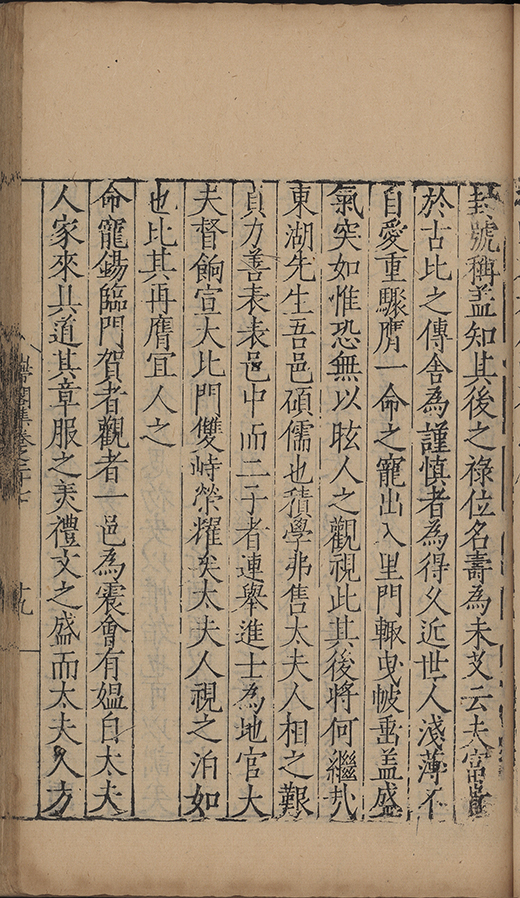 封號稱盖知其後之祿位名壽為未艾云夫富貴
於古比之傳舍為謹慎者為得久近世人淺薄不
自愛重驟膺一命之寵出入里門輙曳帔番盖盛
氣突如惟恐無以眩人之觀視此其後將何繼㢤
東湖先生吾邑碩儒也積學弗售太夫人相之艱
貞力善表表邑中而二子者連舉進士為地官大
夫督餉宣大比門雙峙榮耀矣太夫人視之泊如
也比其再膺宜人之
命寵錫臨門賀者觀者一邑為震會有媪自太夫
人家來具道其章服之美禮文之盛而太夫人方
集卷之三十七
十九